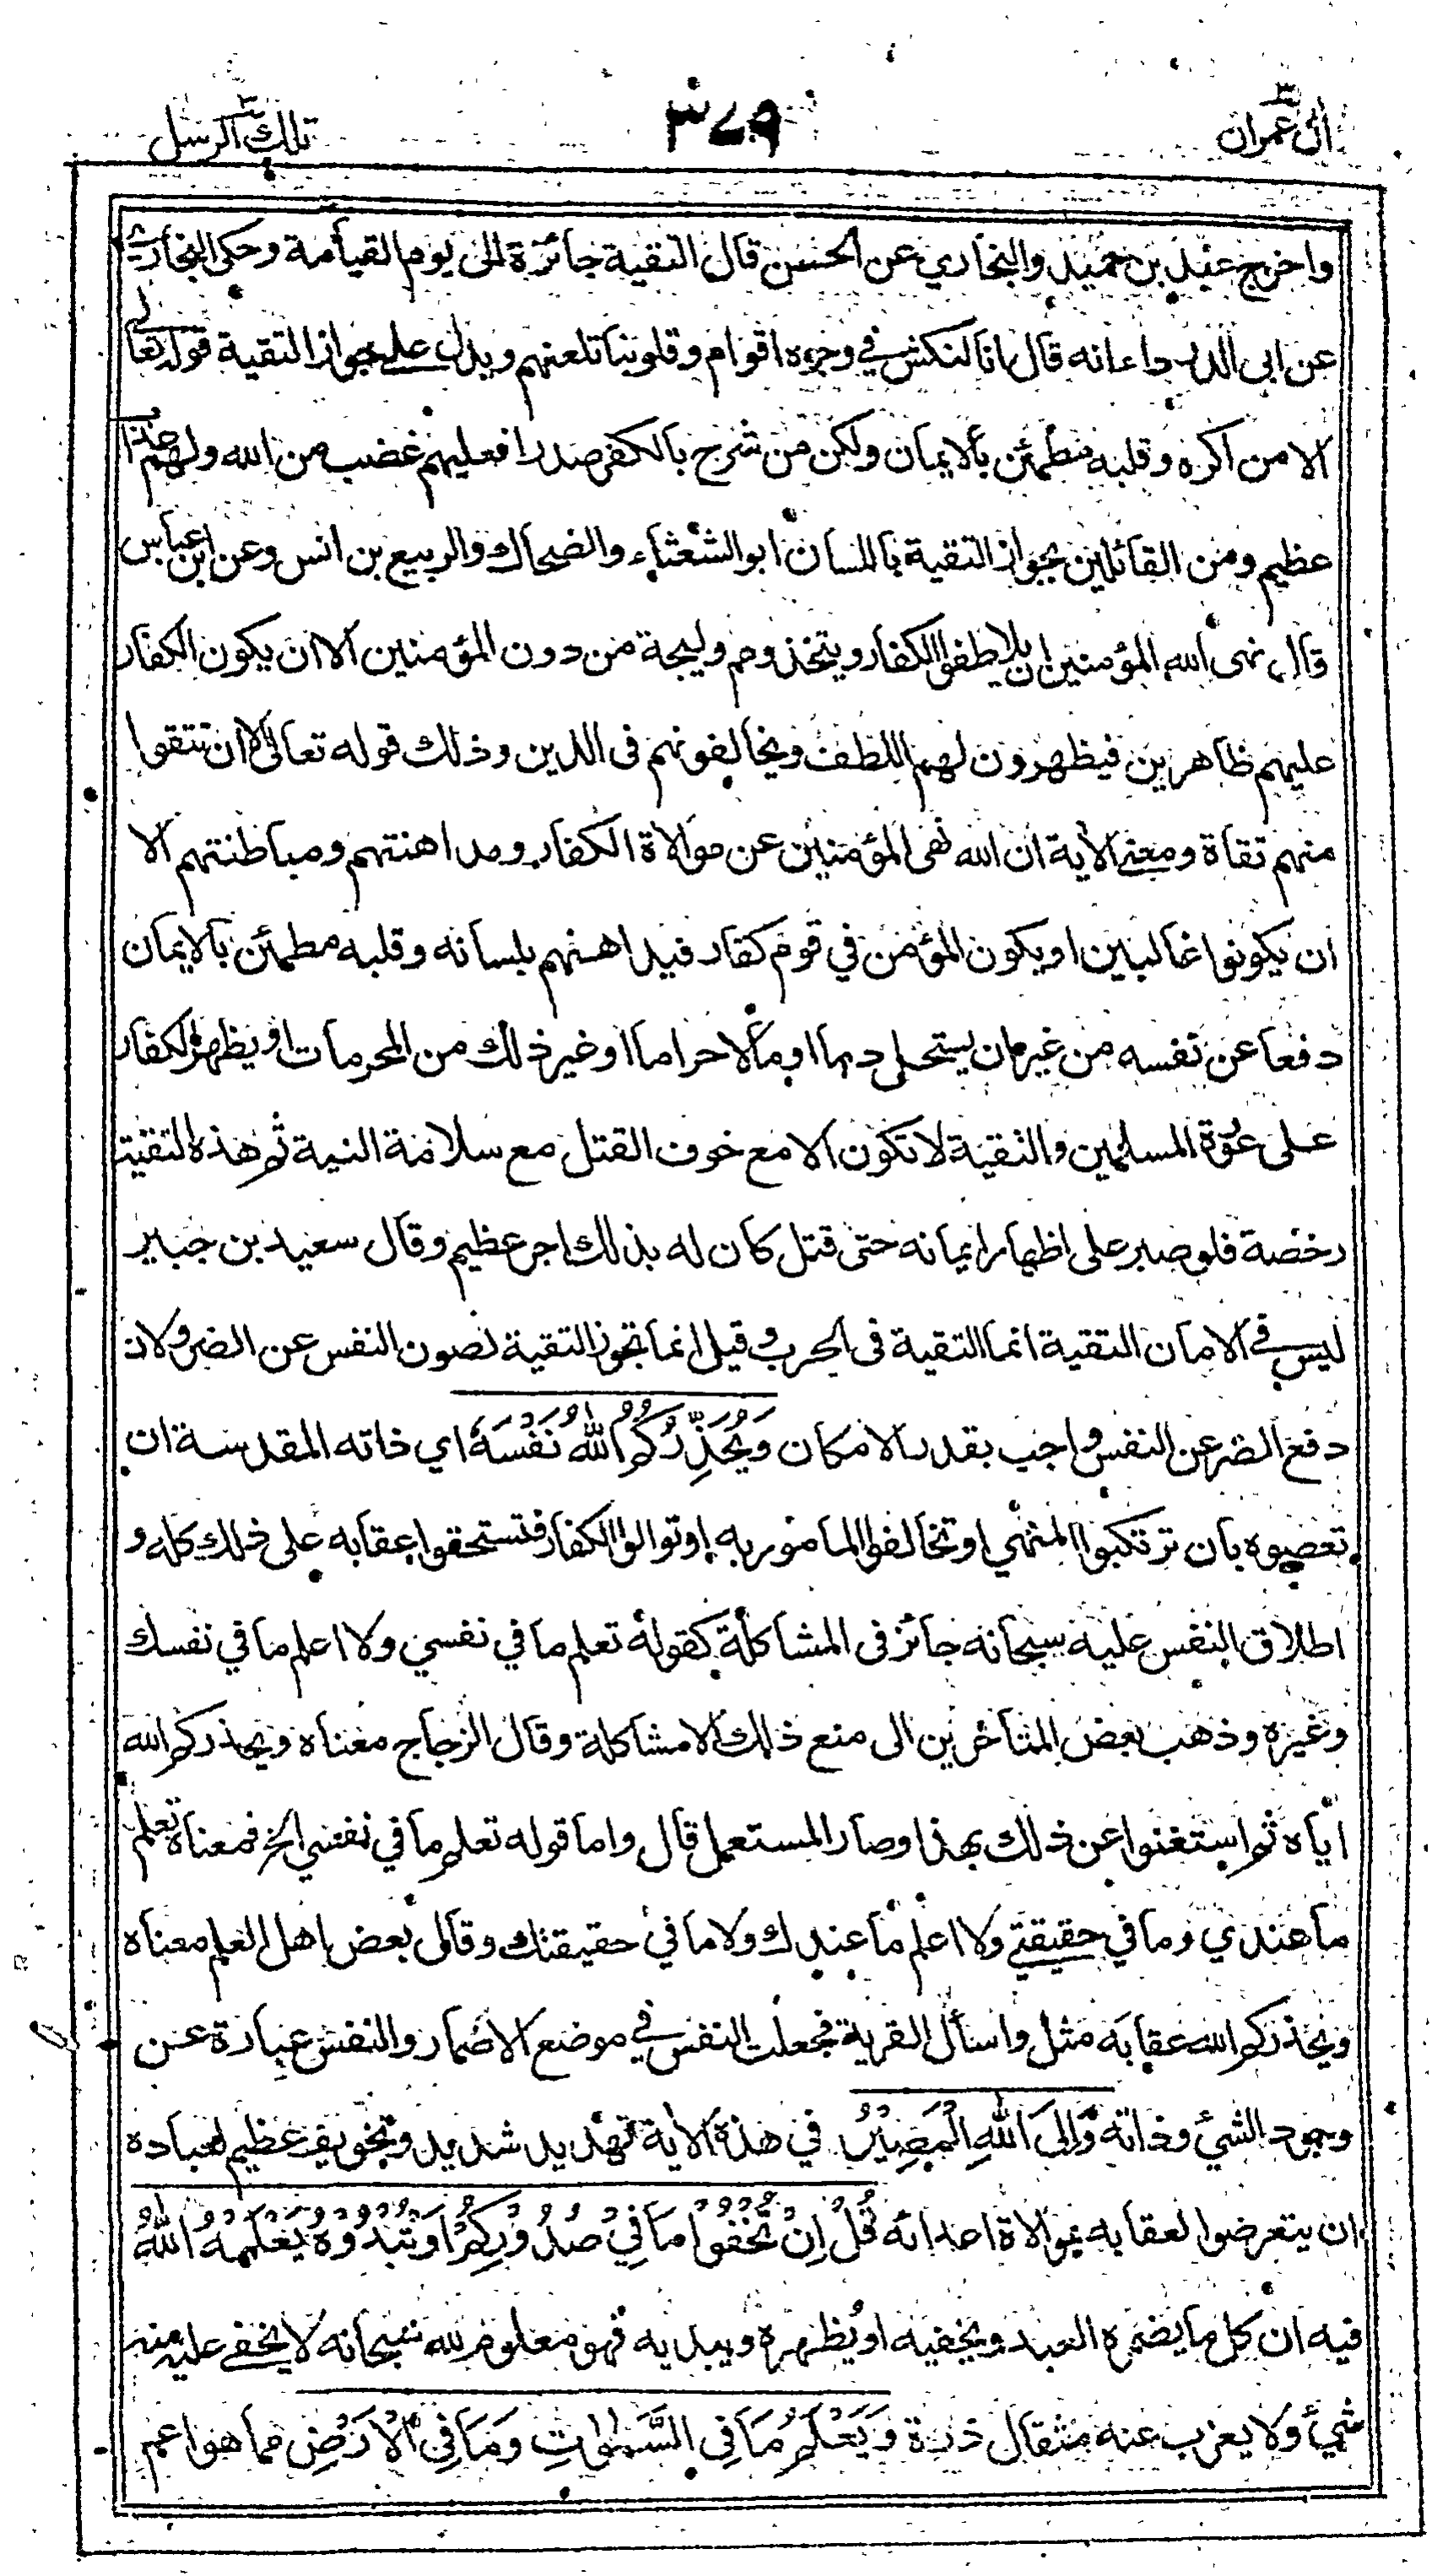 اٰل عمران ٣
٣٧٩
تلك الرسل ٣
واخرج عبد بن حميد والبخاري عن الحسن قال التقية جائزة الى يوم القيامة وحكى البخاري
عن ابى الدرداء انه قال انا لنكشر في وجوه اقوام وقلوبنا تلعنهم ويدل على جواز التقية قوله تعالى
الا من اكره وقلبه مطمئن بالايمان ولكن من شرح بالكفر صدرا فعليهم غضب من الله ولهم عذاب
عظيم ومن القائلين بجواز التقية باللسان ابو الشعثاء والضحاك والربيع بن انس وعن ابن عباس
قال نهى الله المؤمنين ان يلاطفوا الكفار ويتخذوهم وليجة من دون المؤمنين الا ان يكون الكفار
عليهم ظاهرين فيظهرون لهم اللطف ويخالفونهم فى الدين وذلك قوله تعالى الا ان تتقوا
منهم تقاة ومعنى الاية ان الله نهى المؤمنين عن موالاة الكفار ومداهنتهم ومباطنتهم الا
ان يكونوا غالبين او يكون المؤمن في قوم كفار فيداهنهم بلسانه وقلبه مطمئن بالايمان
دفعا عن نفسه من غير ان يستحل دما او مالا حراما او غير ذلك من المحرمات او يظهر الكفار
على عورة المسلمين والتقية لا تكون الا مع خوف القتل مع سلامة النية ثم هذه التقية
رخصة فلو صبر على اظهار ايمانه حتى قتل كان له بذلك اجر عظيم وقال سعيد بن جبير
ليس في الامان التقية انما التقية فى الحرب وقيل انما تجوز التقية لصون النفس عن الضر ولان
دفع الضر عن النفس واجب بقدر الامكان وَيُحَذِّرُكُمُ اللهُ نَفْسَهُ اي ذاته المقدسة ان
تعصوه بان ترتكبوا المنهي او تخالفوا المامور به او توالوا الكفار فتستحقوا عقابه على ذلك كله و
اطلاق النفس عليه سبحانه جائز فى المشاكلة كقوله تعلم ما في نفسي ولا اعلم ما في نفسك
وغيره وذهب بعض المتاخرين الى منع ذلك الا مشاكلة وقال الزجاج معناه ويحذركم الله
اياه ثم استغنوا عن ذلك بهذا وصار المستعمل قال واما قوله تعلم ما في نفسي الخ فمعناه تعلم
ما عندي وما في حقيقتي ولا اعلم ما عندك ولا ما في حقيقتك وقال بعض اهل العلم معناه
ويحذركم الله عقابه مثل واسأل القرية فجعلت النفس في موضع الاضمار والنفس عبارة عن
وجود الشئ وذاته وَاِلَى اللهِ الْمَصِيْرُ في هذه الاية تهديد شديد وتخويف عظيم لعباده
ان يتعرضوا لعقابه بموالاة اعدائه قُلْ اِنْ تُخْفُوْا مَا فِيْ صُدُوْرِكُمْ اَوْ تُبْدُوْهُ يَعْلَمْهُ اللهُ
فيه ان كل ما يضمره العبد ويخفيه او يظهره ويبديه فهو معلوم لله سبحانه لا يخفى عليه منه
شئ ولا يعزب عنه مثقال ذرة وَيَعْلَمُ مَا فِى السَّمٰوٰتِ وَمَا فِى الْاَرْضِ مما هو اعم